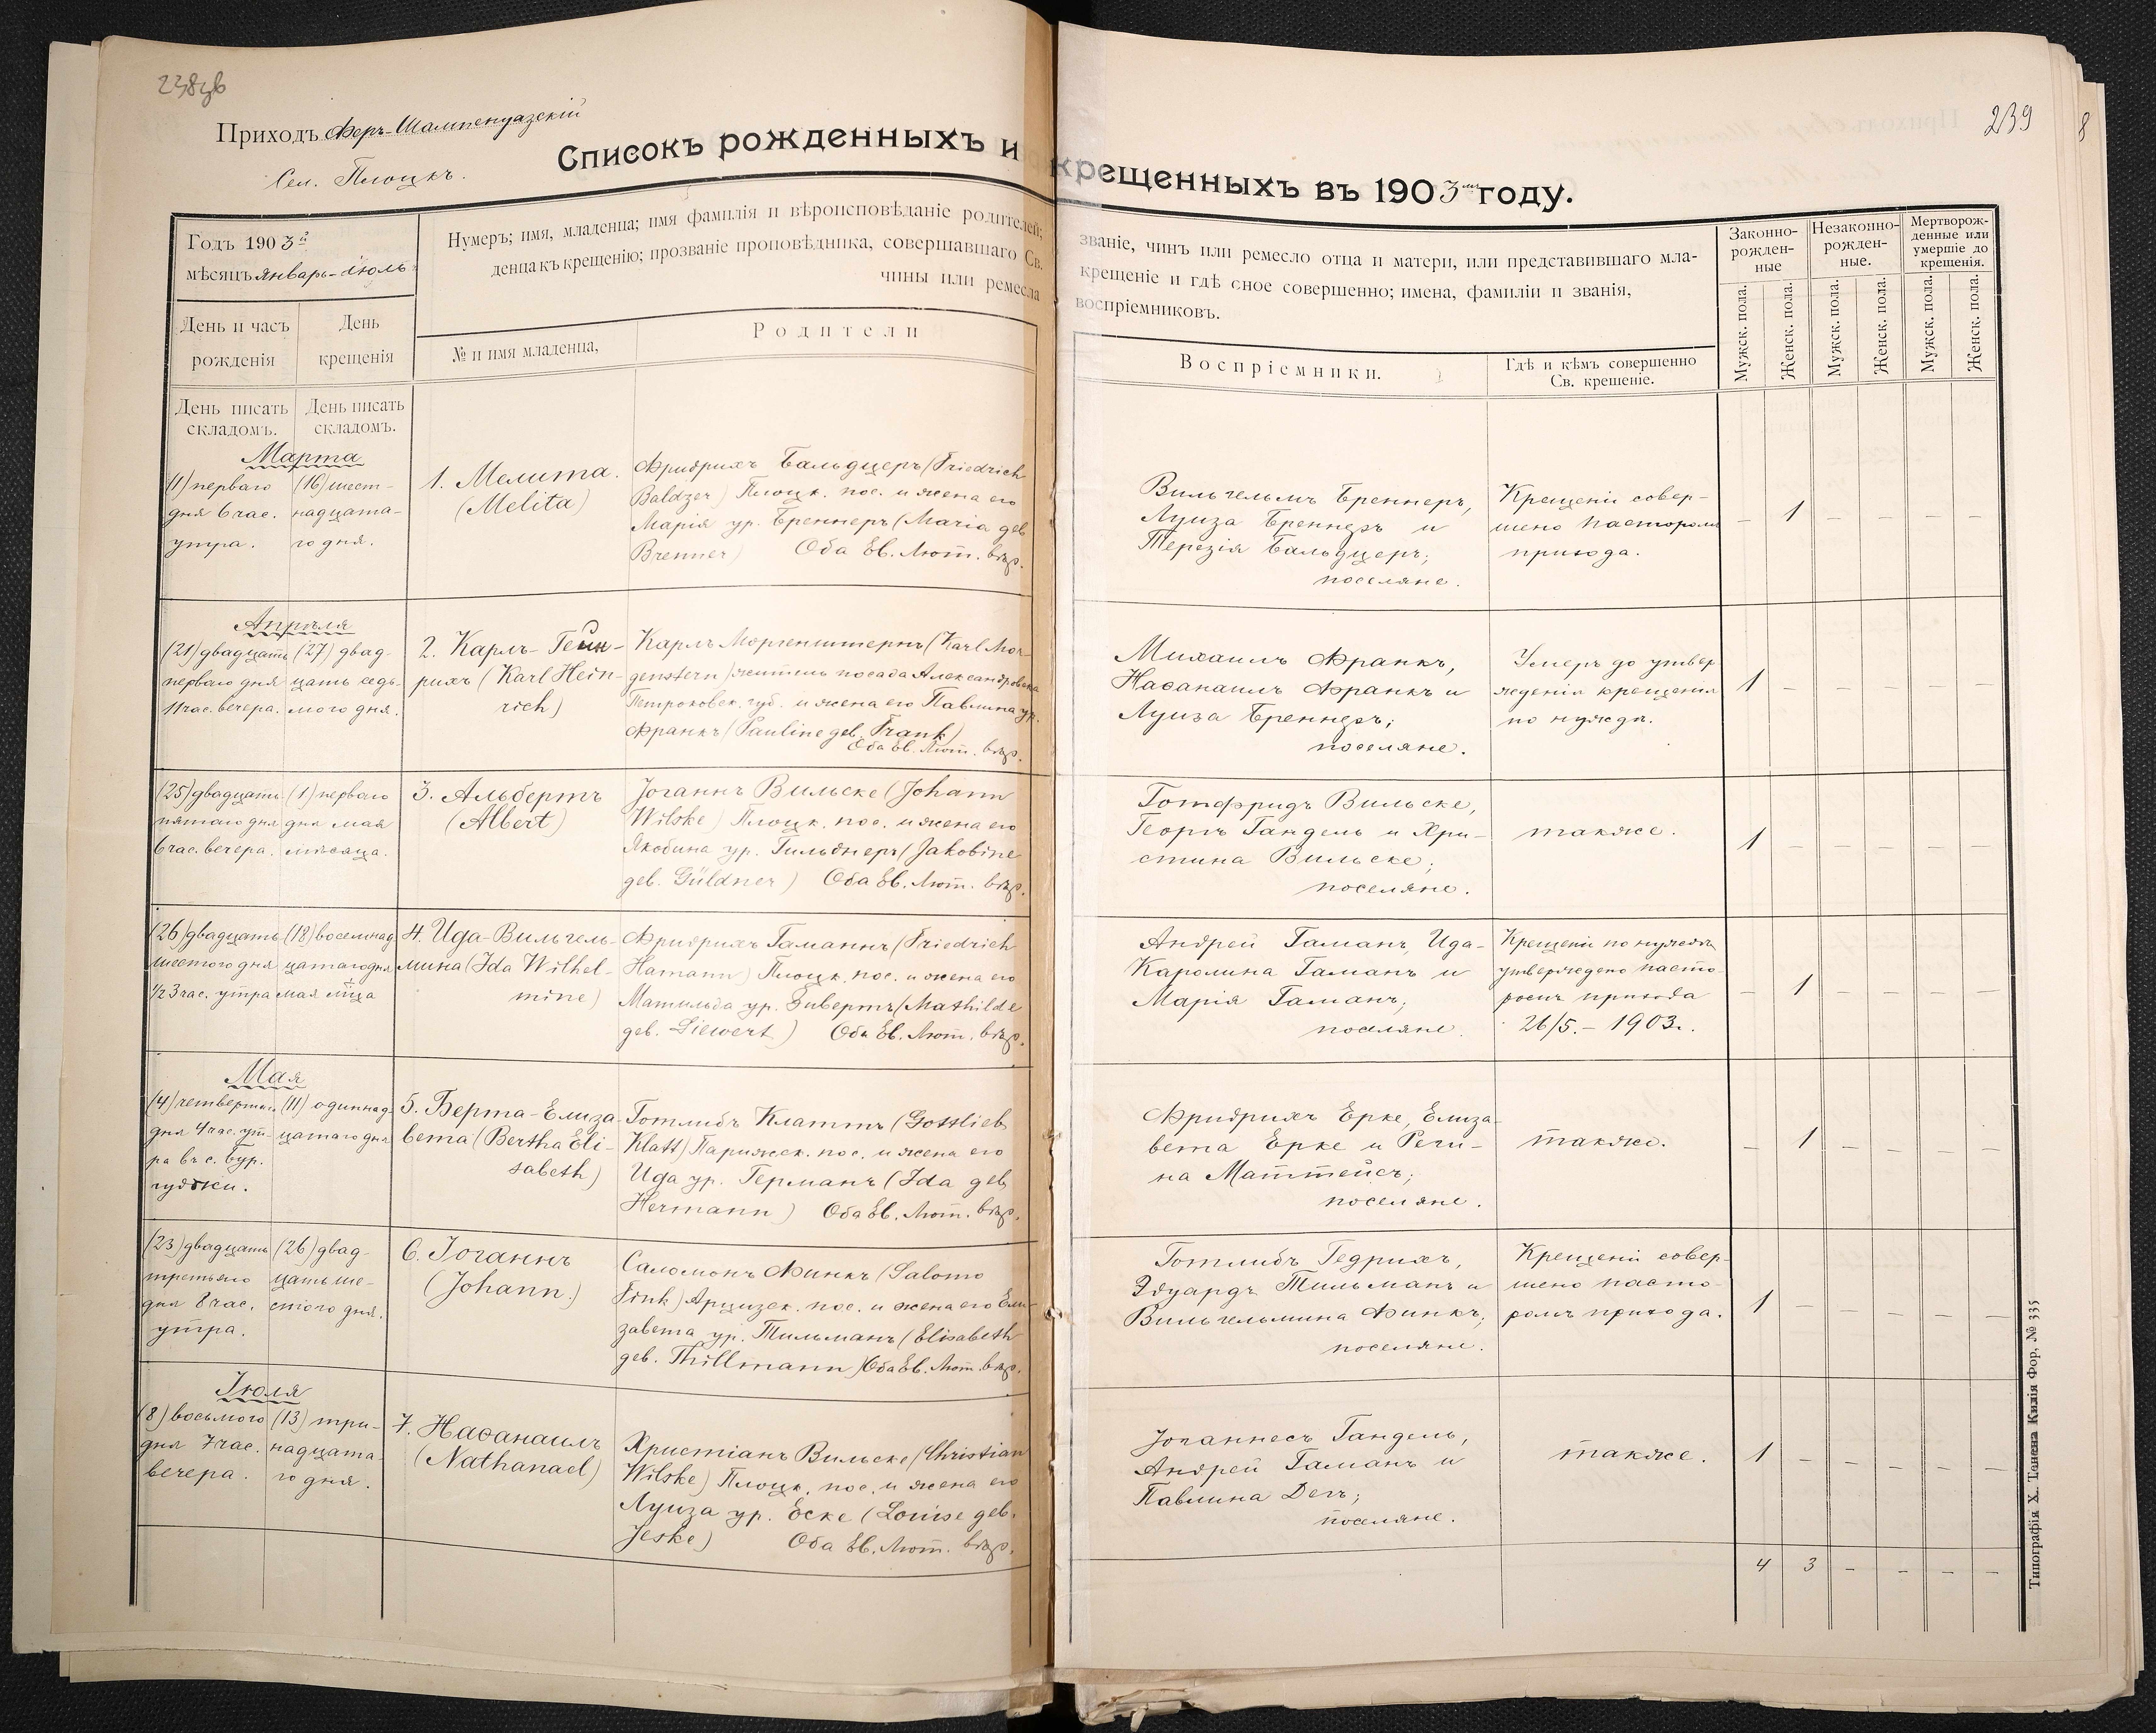 238 об
Приходъ Феръ-Шампенуазскій
Сел. Плоцкъ.
Списокъ рожденныхъ и крещенныхъ въ 1903 году.
239
8
Годъ 1903й
мѣсяцъ Январь-Іюль
День и часъ
рожденія
День
крещенія
День писать
складомъ.
День писать
складомъ.
Нумеръ; имя, младенца; имя фамилія и вѣроисповѣданіе родителей; званіе, чинъ или ремесло отца и матери, или представившаго мла-
денца къ крещенію; прозваніе проповѣдника, совершавшаго Св. крещеніе и гдѣ сное совершенно; имена, фамиліи и званія,
чины или ремесла воспріемниковъ.
№ и имя младенца,
Родители
Воспріемники.
Гдѣ и кѣмъ совершенно
Св. крещеніе.
Законно-
рожден-
ные
Незаконно-
рожден-
ные.
Мертворож-
денные или
умершіе до
крещенія.
Мужск. пола.
Женск. пола.
Мужск. пола.
Женск. пола.
Мужск. пола.
Женск. пола.
Марта
(1) перваго
дня 6 час.
утра.
(16) шест-
надцата-
го дня.
1. Мелита.
(Melita)
Фридрихъ Бальдцеръ (Friedrich
Baldzer) Плоцк. пос. и жена его
Марія ур. Бреннеръ (Maria geb
Brenner) Оба Ев. Лют. вѣр.
Вильгельмъ Бреннеръ,
Луиза Бреннеръ и
Терезія Бальдцеръ;
поселяне.
Крещеніе совер-
шено пасторомъ
прихода.
– 1 – – – –
Апрѣля
(21) двадцать
перваго дня
11 час. вечера.
(27) двад-
цать седь-
мого дня.
2. Карлъ-Гейн-
рихъ (Karl Hein-
rich)
Карлъ Моргенштернъ (Karl Mor-
genstern) житель посада Александровска
Петроковск. губ. и жена его Павлина ур.
Франкъ (Pauline geb. Frank)
Оба Ев. Лют. вѣр.
Михаилъ Франкъ,
Наѳанаилъ Франкъ и
Луиза Бреннеръ;
поселяне.
Умеръ до утвер
жденія крещенія
по нуждѣ.
1 – – – – –
(25) двадцать
пятаго дня
6 час. вечера.
(1) перваго
дня мая
мѣсяца.
3. Альбертъ
(Albert)
Іоганнъ Вильске (Johann
Wilske) Плоцк. пос. и жена его
Якобина ур. Гильднеръ (Jakobine
geb. Güldner) Оба Ев. Лют. вѣр.
Готфридъ Вильске,
Георгъ Гандель и Хри-
стина Вильске;
поселяне.
также.
1 – – – – –
(26) двадцать
шестого дня
1/2 3 час. утра
(18) восемнад
цатаго дня
мая мѣца
4. Ида-Вильгель-
мина (Ida Wilhel-
mine)
Фридрихъ Гаманнъ (Friedrich
Hamann) Плоцк. пос. и жена его
Матильда ур. Зивертъ (Mathilde
geb. Siewert) Оба Ев. Лют. вѣр.
Андрей Гаманъ, Ида-
Каролина Гаманъ и
Марія Гаманъ;
поселяне.
Крещеніе по нуждѣ
утверждено пасто-
ромъ прихода
26/5. – 1903.
– 1 – – – –
Мая
(4) четвертаго
дня 4 час. ут-
ра въ с. Бур.
гуджи.
(11) одиннад-
цатаго дня
5. Берта-Елиза-
бета (Bertha Eli-
sabeth)
Готлибъ Клаттъ (Gottlieb
Klatt) Парижск. пос. и жена его
Ида ур. Германъ (Ida geb
Hermann) Оба Ев. Лют. вѣр.
Фридрихъ Ерке, Елиза-
бета Ерке и Реги-
на Маттейсъ;
поселяне.
также.
– 1 – – – –
(23) двадцать
третьяго
дня 8 час.
утра.
(26) двад-
цать ше-
стого дня.
6. Іоганнъ
(Johann.)
Саломонъ Финкъ (Salomo
Fink) Арцизск. пос. и жена его Ели-
забета ур. Тильманъ (Elisabeth
geb. Thillmann) Оба Ев. Лют. вѣр.
Готлибъ Гедрихъ,
Эдуардъ Тильманъ и
Вильгельмина Финкъ;
поселяне.
Крещеніе совер-
шено пасто-
ромъ прихода.
1 – – – – –
Іюля
(8) восьмого
дня 7 час.
вечера.
(13) три-
надцата-
го дня.
7. Наѳанаилъ
(Nathanael)
Христіанъ Вильске (Christian
Wilske) Плоцк. пос. и жена его
Луиза ур. Еске (Louise geb.
Jeske) Оба Ев. Лют. вѣр.
Іоганнесъ Гандель,
Андрей Гаманъ и
Павлина Дегъ;
поселяне.
также.
1 – – – – –
4 3 – – – –
Типографія Х. Танена Килія Фор. № 335